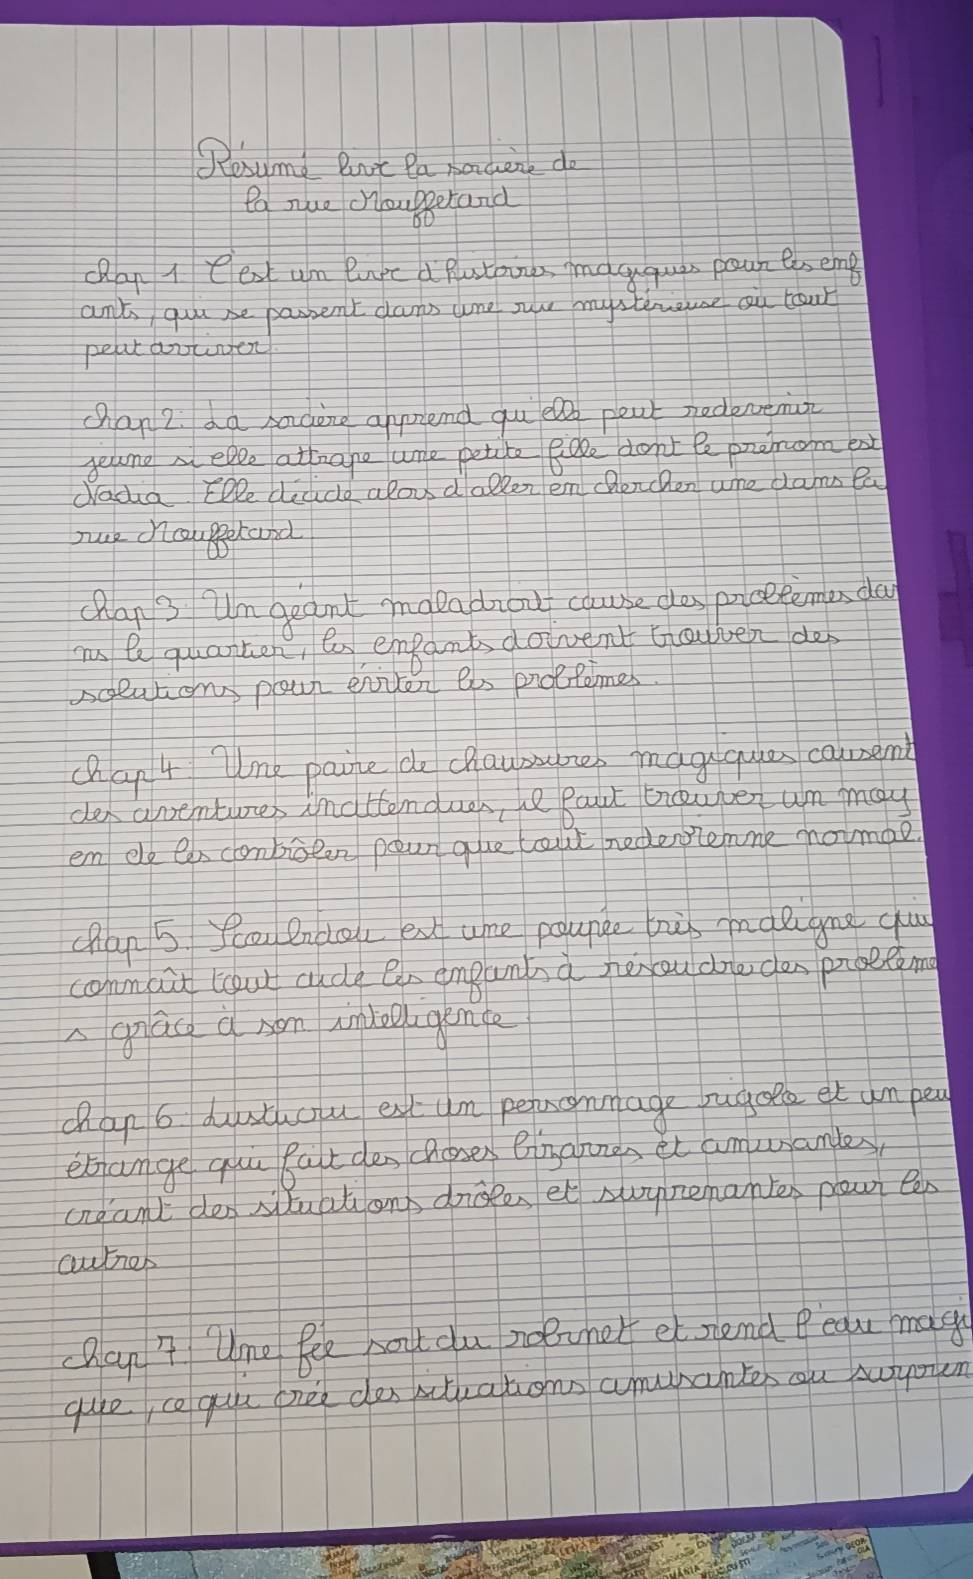 Résumé livre la sorcière de
la rue Mouffetard
chap 1 C'est un livre d'histoires magiques pour les enf
ants, qui se passent dans une rue mystérieuse où tout
peut arriver.
chap 2. La sorcière apprend qu'elle peut redevenir
jeune si elle attrape une petite fille dont le prénom est
Nadia. Elle décide alors d'aller en chercher une dans la
rue Mouffetard
chap 3 Un géant maladroit cause des problèmes da
ns le quartier, les enfants doivent trouver des
solutions pour éviter les problèmes.
chap 4 Une paire de chaussures magiques causent
des aventures inattendues, il faut trouver un moy
en de les contrôler pour que tout redevienne normal.
chap 5. Scoubidou est une poupée très maligne qui
connaît tout aide les enfants à résoudre des problème
s grâce à son intelligence
chap 6. Lustucru est un personnage rigolo et un peu
étrange qui fait des choses bizarres et amusantes,
créant des situations drôles et surprenantes pour les
autres
chap 7. Une fée sort du robinet et rend l'eau magi
que, ce qui crée des situations amusantes ou surpren
BUDAPEST